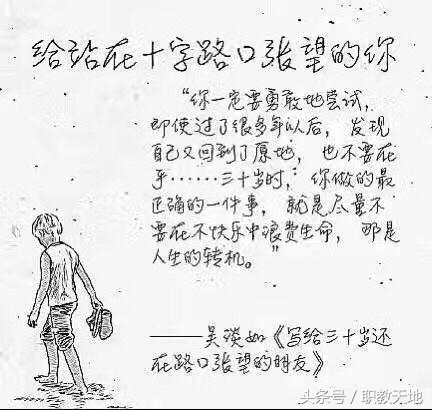 给站在十字路口张望的你
“你一定要勇敢地尝试，
即使过了很多年以后，发现
自己又回到了原地，也不要在
乎……三十岁时，你做的最
正确的一件事，就是尽量不
要在不快乐中浪费生命，那是
人生的转机。”
——吴淡如《写给三十岁还
在路口张望的朋友》
头条号 / 职教天地